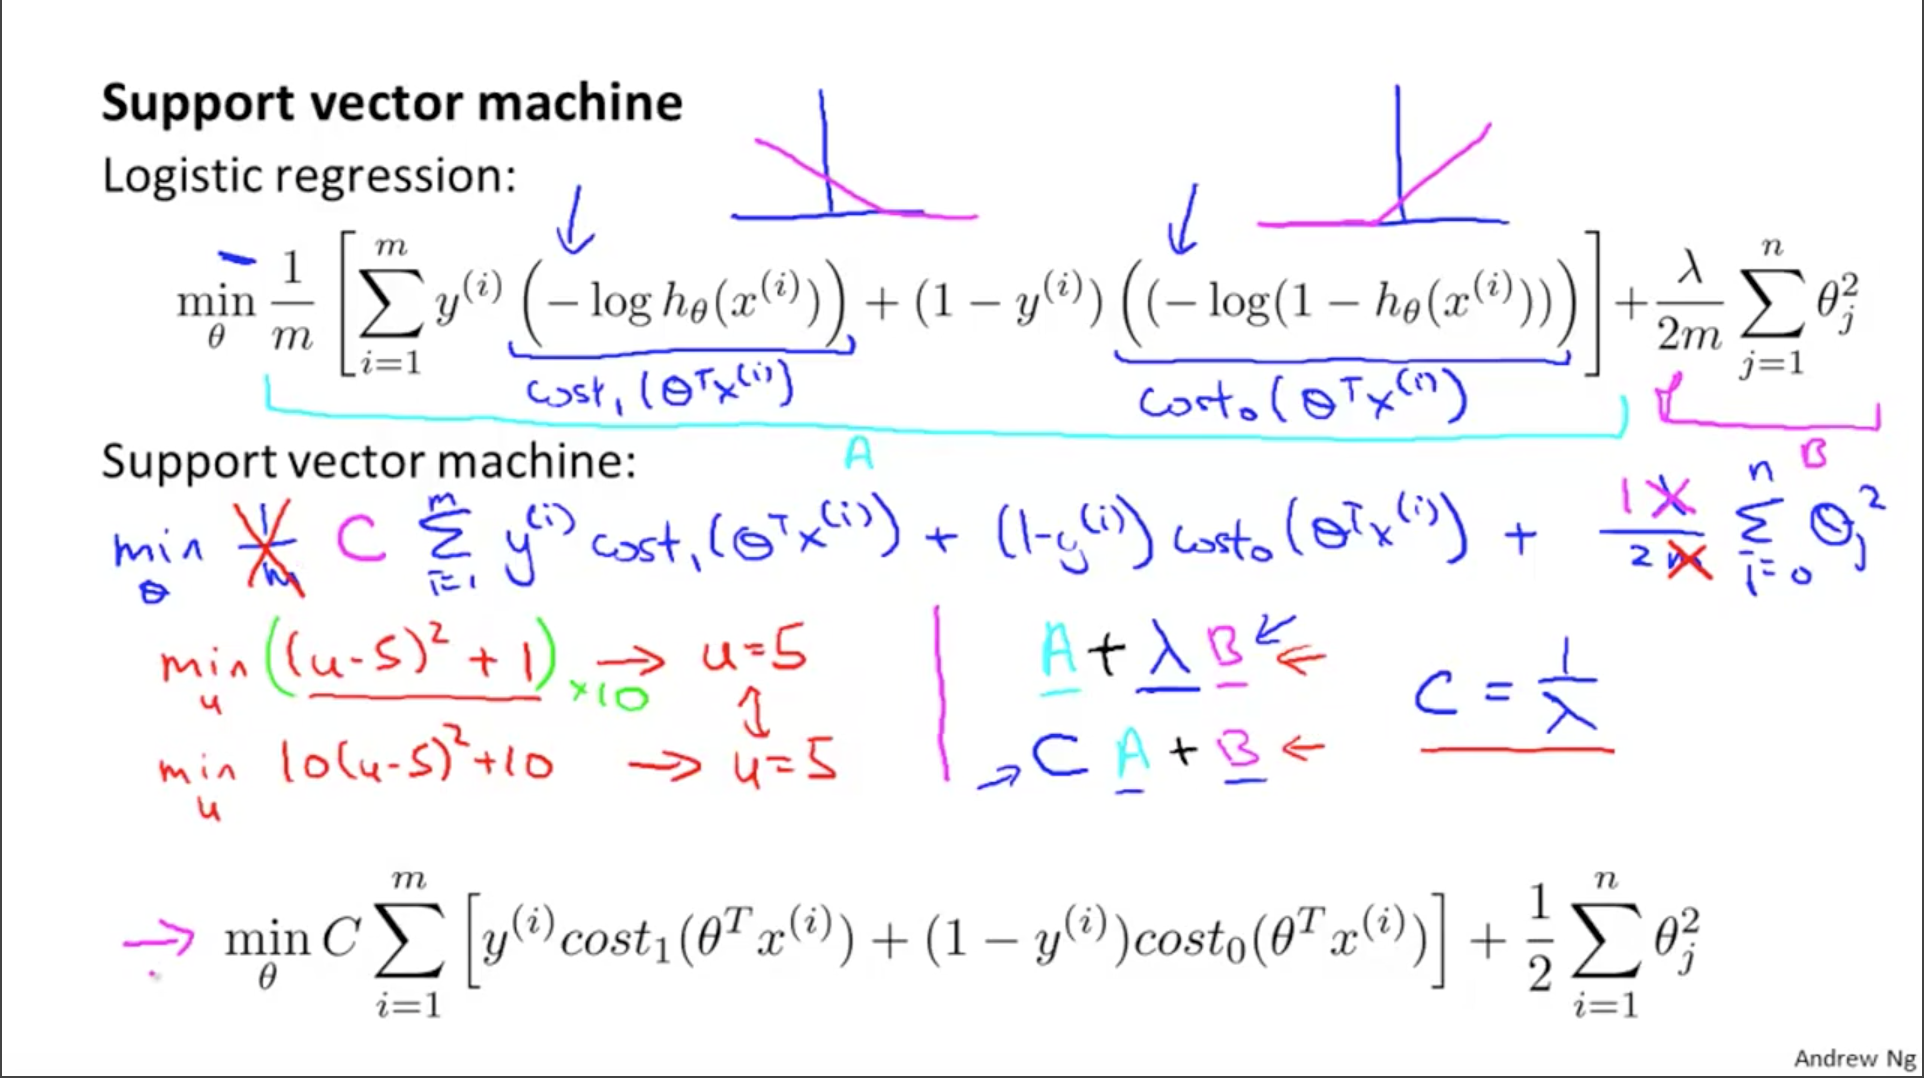 Support vector machine
Logistic regression:
min_θ 1/m [ ∑_{i=1}^{m} y^{(i)} (−log h_θ(x^{(i)})) + (1 − y^{(i)}) ((−log(1 − h_θ(x^{(i)}))) ] + λ/2m ∑_{j=1}^{n} θ_j^2
cost_1(θ^T x^{(i)}) cost_0(θ^T x^{(i)})
A B
Support vector machine:
min_θ 1/m C ∑_{i=1}^{m} y^{(i)} cost_1(θ^T x^{(i)}) + (1-y^{(i)}) cost_0(θ^T x^{(i)}) + 1 λ/2m ∑_{i=0}^{n} θ_j^2
min_u ((u-5)^2 + 1) ×10 → u=5
min_u 10(u-5)^2+10 → u=5
A + λ B ←
→ C A + B ←
C = 1/λ
→ min_θ C ∑_{i=1}^{m} [ y^{(i)} cost_1(θ^T x^{(i)}) + (1 − y^{(i)}) cost_0(θ^T x^{(i)}) ] + 1/2 ∑_{i=1}^{n} θ_j^2
Andrew Ng